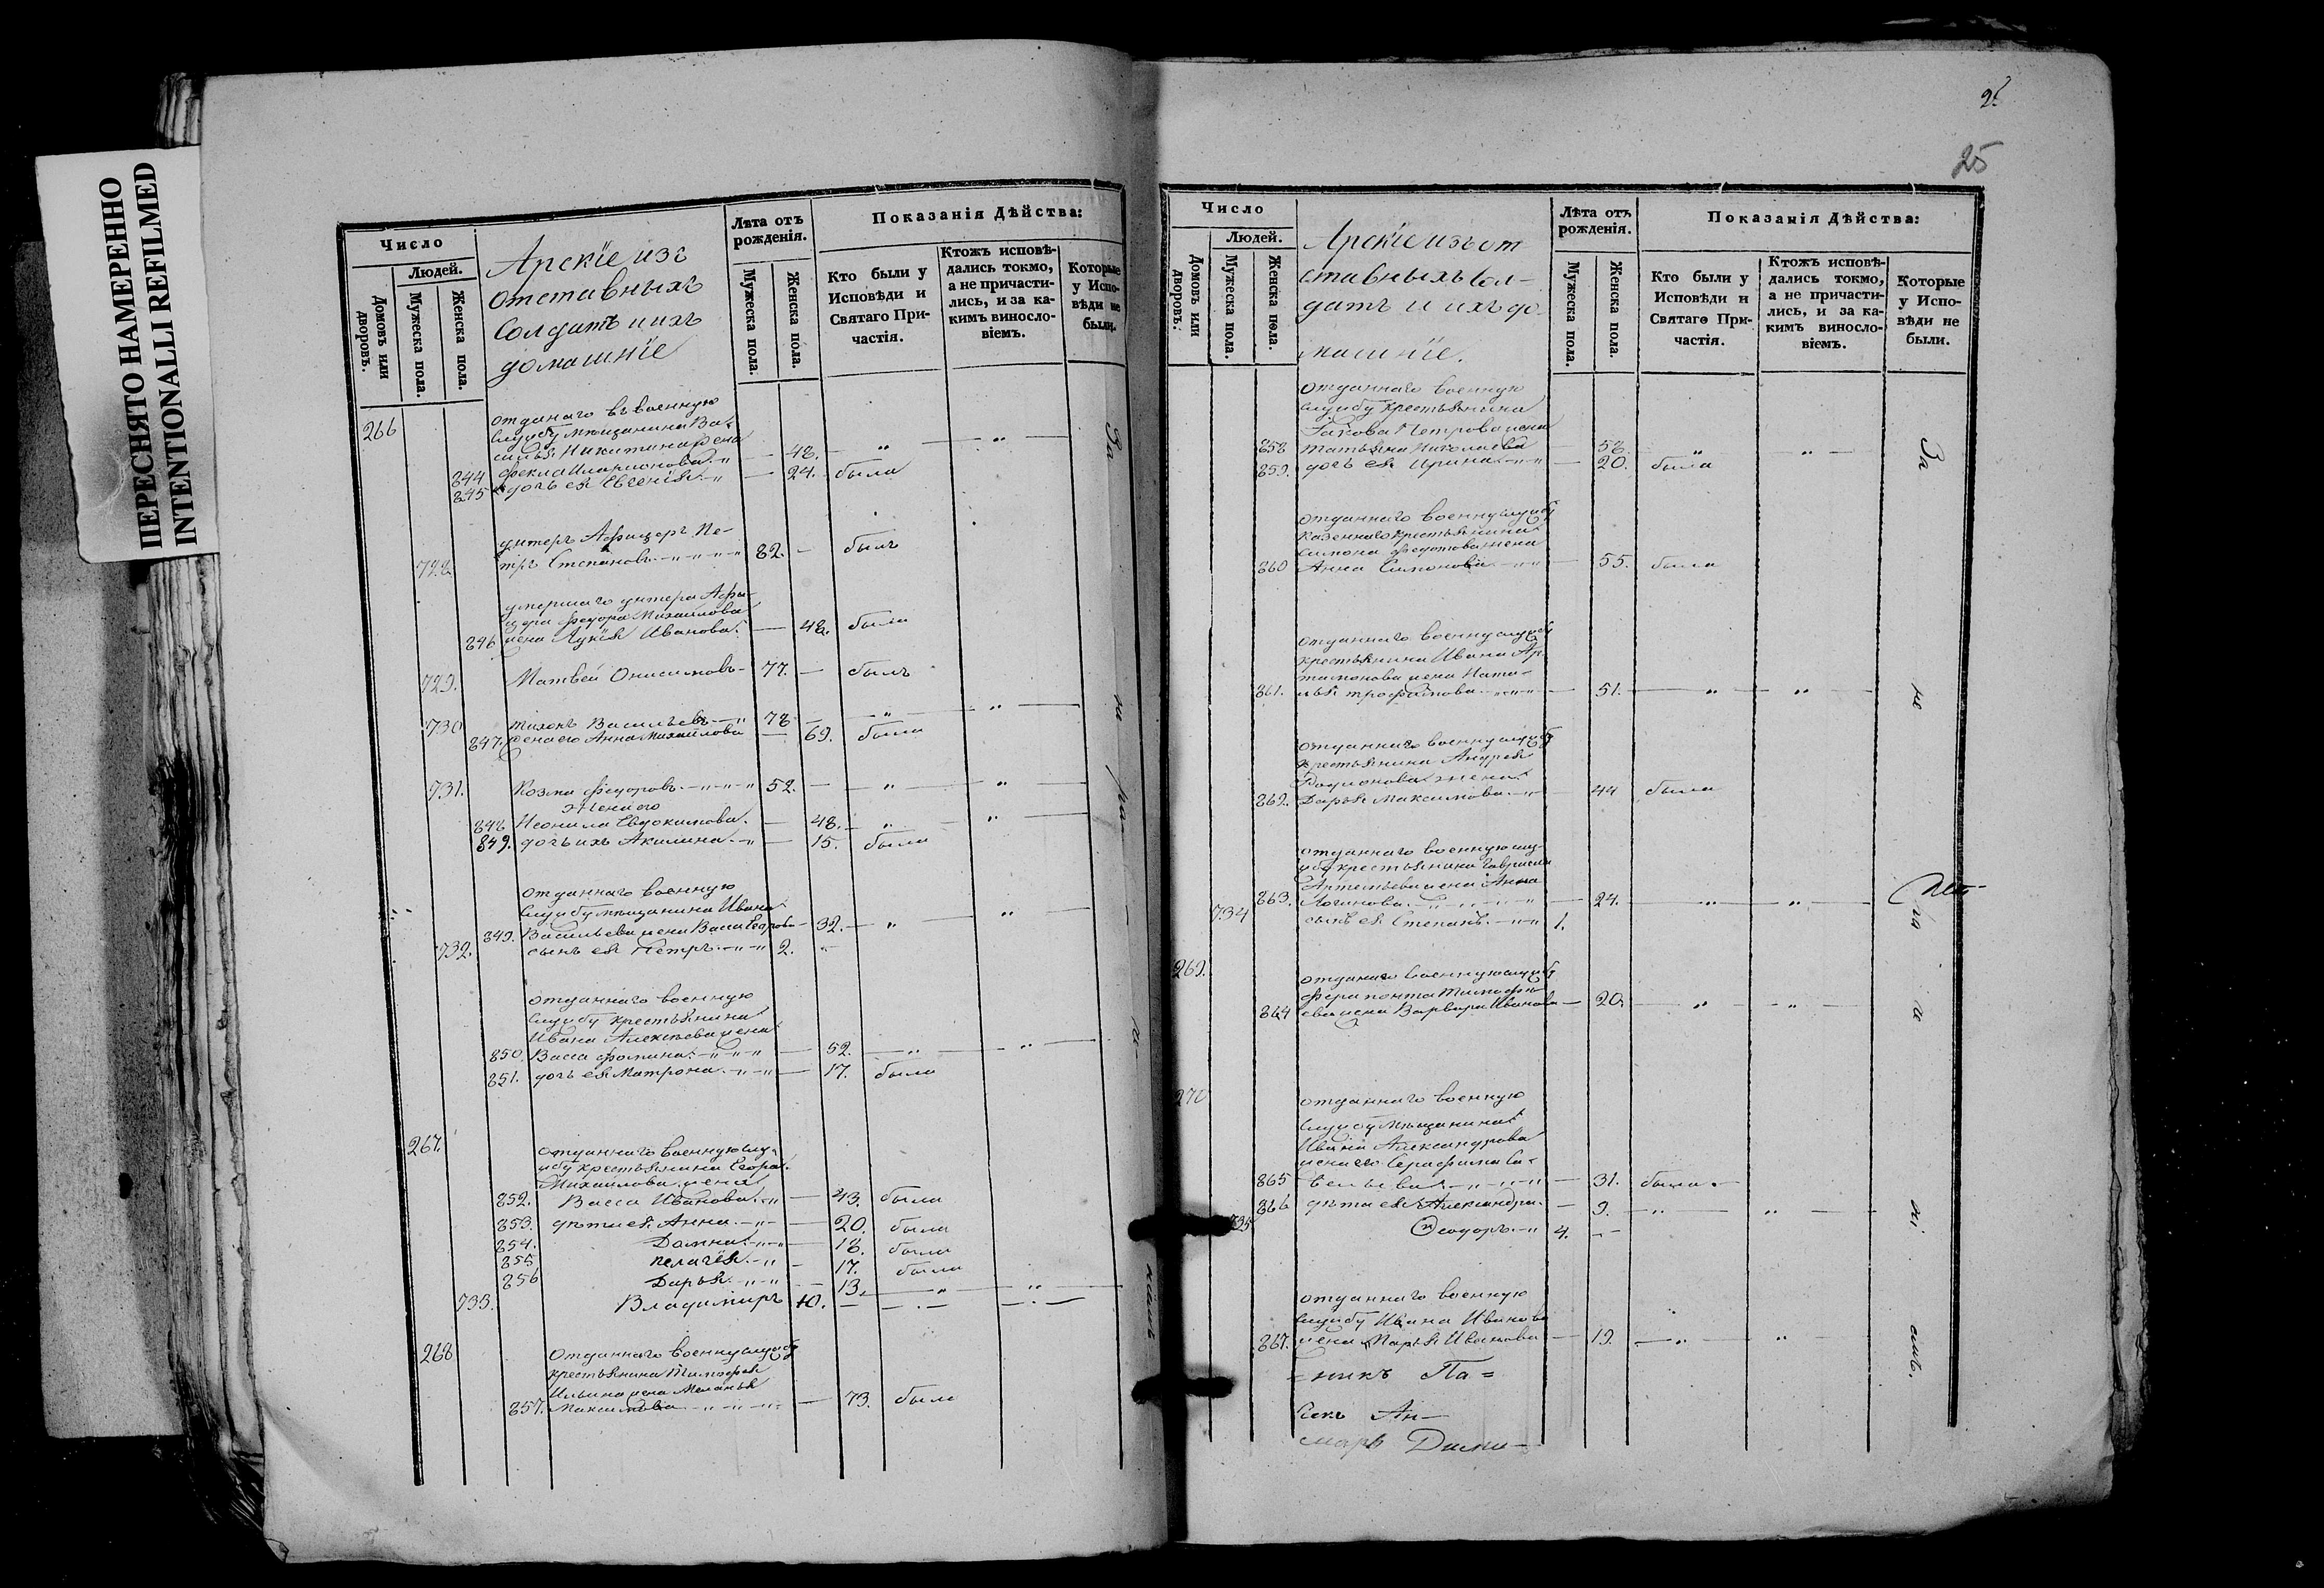 ПЕРЕСНЯТО НАМЕРЕННО
INTENTIONALLI REFILMED
Число
Людей.
Домовъ или дворовъ.
Мужеска пола.
Женска пола.
Арскіе изъ
отставныхъ
Солдатъ и ихъ
домашніе
Лѣта отъ рожденія.
Мужеска пола.
Женска пола.
Показанія Дѣйства:
Кто были у Исповѣди и Святаго Причастія.
Ктожъ исповѣдались токмо, а не причастились, и за какимъ винословіемъ.
Которые у Исповѣди не были.
266
отданаго въ военную
службу мѣщанина Ва-
силья Никитина жена
844 Фекла Иларионова 48. "
845 дочь ея Евгенія 24. была
унтеръ Афицеръ Пе-
728 тръ Степановъ 82. былъ
умершаго унтера Афи-
цера Федора Михайлова
846 жена Лукія Иванова 48. была
729. Матвей Онисимовъ 77. былъ
730 Тихонъ Васильевъ 78 "
847. жена его Анна Михайлова 69. была
731. Козма Федоровъ 52. "
Жена его
848 Неонила Евдокимова 48. "
849. дочь ихъ Акилина 15. была
отданнаго военную
службу мѣщанина Ивана
849. Васильева жена Васса Егорова 32. "
732. сынъ ея Петръ 2.
отданнаго военную
службу крестьянина
Ивана Алексѣева жена
850. Васса Фомина 52. "
851. дочь ея Матрона 17. была
267. отданнаго военную слу-
жбу крестьянина Егора
Михайлова жена
852. Васса Иванова 43. была
853. дѣти ея Анна 20. была
854. Домна 18. была
855 Пелагея 17. была
856 Дарья 13. "
733. Владимиръ 10.
268 Отданнаго военну службу
крестьянина Тимофея
Ильина жена Меланья
857. Максимова 73. была
За
на
ра
25
Число
Людей.
Домовъ или дворовъ.
Мужеска пола.
Женска пола.
Арскіе изъ от
ставныхъ Сол-
датъ и ихъ до
машніе.
Лѣта отъ рожденія.
Мужеска пола.
Женска пола.
Показанія Дѣйства:
Кто были у Исповѣди и Святаго Причастія.
Ктожъ исповѣдались токмо, а не причастились, и за какимъ винословіемъ.
Которые у Исповѣди не были.
отданнаго военную
службу крестьянина
Іакова Петрова жена
858 Татьяна Николаева 58. "
859. дочь ея Ирина 20. была
отданнаго военну службу
казеннаго крестьянина
Симона Федотова жена
860 Анна Симонова 55. была
отданнаго военну службу
крестьянина Ивана Ар-
тамонова жена Ната-
861. лья Трофимова 51. "
отданнаго военну службу
крестьянина Андрея
Родионова жена
862. Дарья Максимова 44 была
отданнаго военную слу-
жбу крестьянина Гавриила
Артемьева жена Анна
863. Логинова 24. "
734 сынъ ея Степанъ 1.
269. отданаго военную службу
Ферапонта Тимофе-
864 ева жена Варвара Иванова 20. "
270 отданнаго военную
службу мѣщанина
Ивана Александрова
жена его Серафима Са-
865 вельева 31. была
866 дѣти ея Александра 9. "
735 Ѳеодоръ 4.
отданнаго военную
службу Ивана Иванова
867. жена Марья Иванова 19. "
За
не
никъ Па=
Ан-